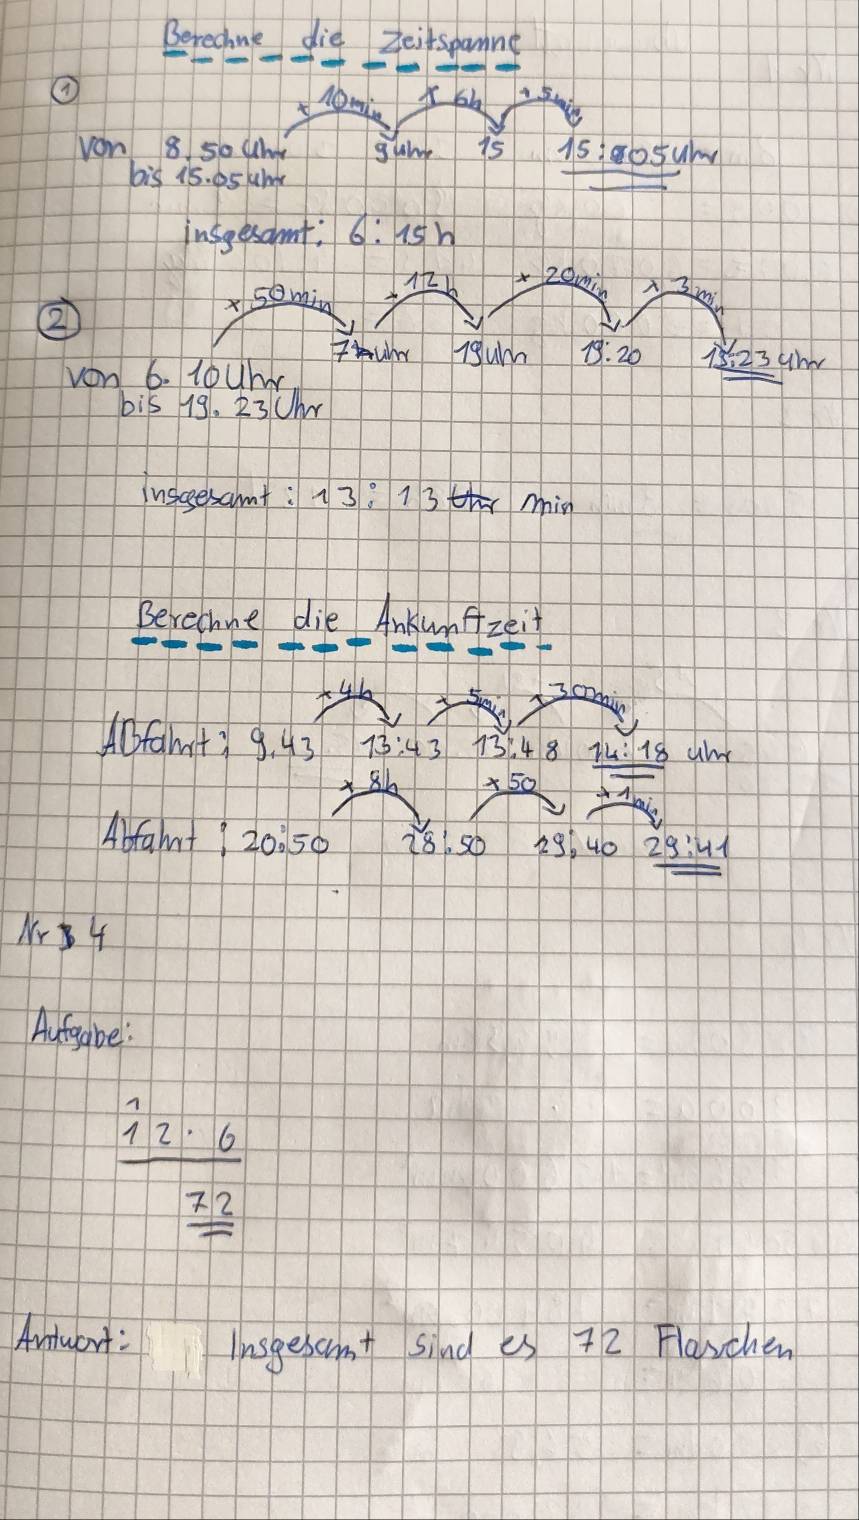 Berechne die Zeitspanne
① + 10min + 6h + 5min
von 8.50 Uhr 9uhr 15 15:05uhr
bis 15.05uhr
insgesamt: 6:15h
② + 50min + 12h + 20min + 3min
7uhr 19uhr 19:20 19:23 uhr
von 6.10Uhr
bis 19.23Uhr
insgesamt: 13:13 min
Berechne die Ankunftzeit
+ 4h + 5min + 30min
Abfahrt: 9.43 13:43 13:48 14:18 uhr
+ 8h + 50 + 1min
Abfahrt: 20:50 28:50 29:40 29:41
Nr 4
Aufgabe:
1
12 · 6
72
Antwort: Insgesamt sind es 72 Flaschen